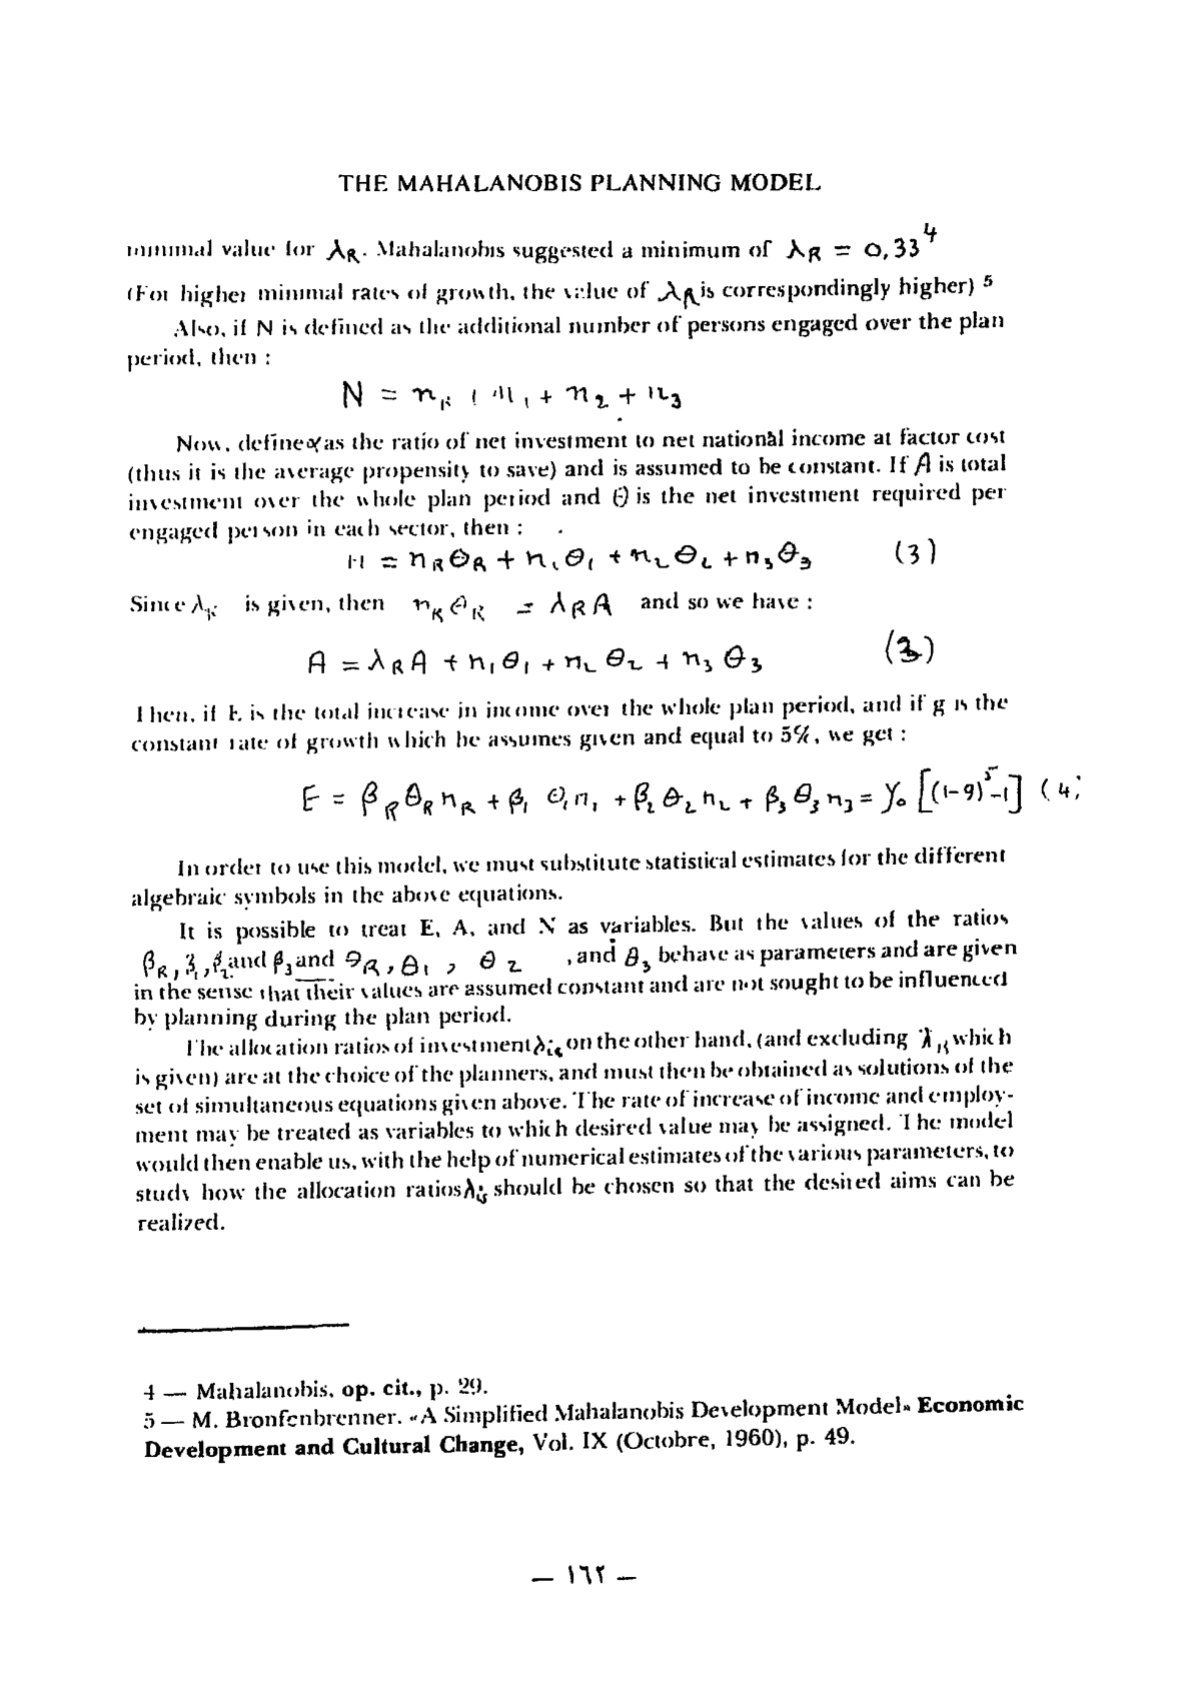 THE MAHALANOBIS PLANNING MODEL
minimal value for λR. Mahalanobis suggested a minimum of λR = 0,33 4
(For higher minimal rates of growth, the value of λR is correspondingly higher) 5
Also, if N is defined as the additional number of persons engaged over the plan
period, then :
N = nR + n1 + n2 + n3
Now, define α as the ratio of net investment to net national income at factor cost
(thus it is the average propensity to save) and is assumed to be constant. If A is total
investment over the whole plan period and θ is the net investment required per
engaged person in each sector, then :
= nRθR + n1θ1 + n2θ2 + n3θ3 (3)
Since λR is given, then nRθR = λRA and so we have :
A = λRA + n1θ1 + n2θ2 + n3θ3 (3)
Then, if E is the total increase in income over the whole plan period, and if g is the
constant rate of growth which he assumes given and equal to 5%, we get :
E = βRθRnR + β1θ1n1 + β2θ2n2 + β3θ3n3 = y0 [(1-g)^5-1] (4)
In order to use this model, we must substitute statistical estimates for the different
algebraic symbols in the above equations.
It is possible to treat E, A, and N as variables. But the values of the ratios
βR, β1, β2 and β3 and θR, θ1, θ2, and θ3 behave as parameters and are given
in the sense that their values are assumed constant and are not sought to be influenced
by planning during the plan period.
The allocation ratios of investment on the other hand, (and excluding λR which
is given) are at the choice of the planners, and must then be obtained as solutions of the
set of simultaneous equations given above. The rate of increase of income and employ-
ment may be treated as variables to which desired value may be assigned. The model
would then enable us, with the help of numerical estimates of the various parameters, to
study how the allocation ratios should be chosen so that the desired aims can be
realized.
4 — Mahalanobis, op. cit., p. 29.
5 — M. Bronfenbrenner. «A Simplified Mahalanobis Development Model» Economic
Development and Cultural Change, Vol. IX (Octobre, 1960), p. 49.
— ١٦٢ —